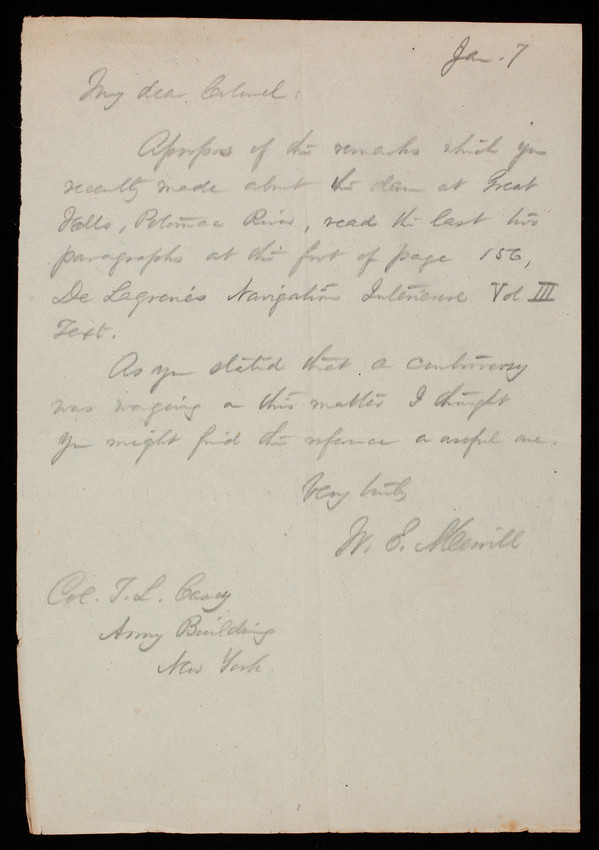 Jan. 7
My dear Colonel:
Apropos of the remarks which you
recently made about the dam at Great
Falls, Potomac River, read the last two
paragraphs at the foot of page 156,
De Lagrené's Navigation Interieure Vol III
Text.
As you stated that a controversy
was waging on this matter I thought
you might find the reference a useful one.
Very truly
W. E. Merrill
Col. T. L. Casey
Army Building
New York.